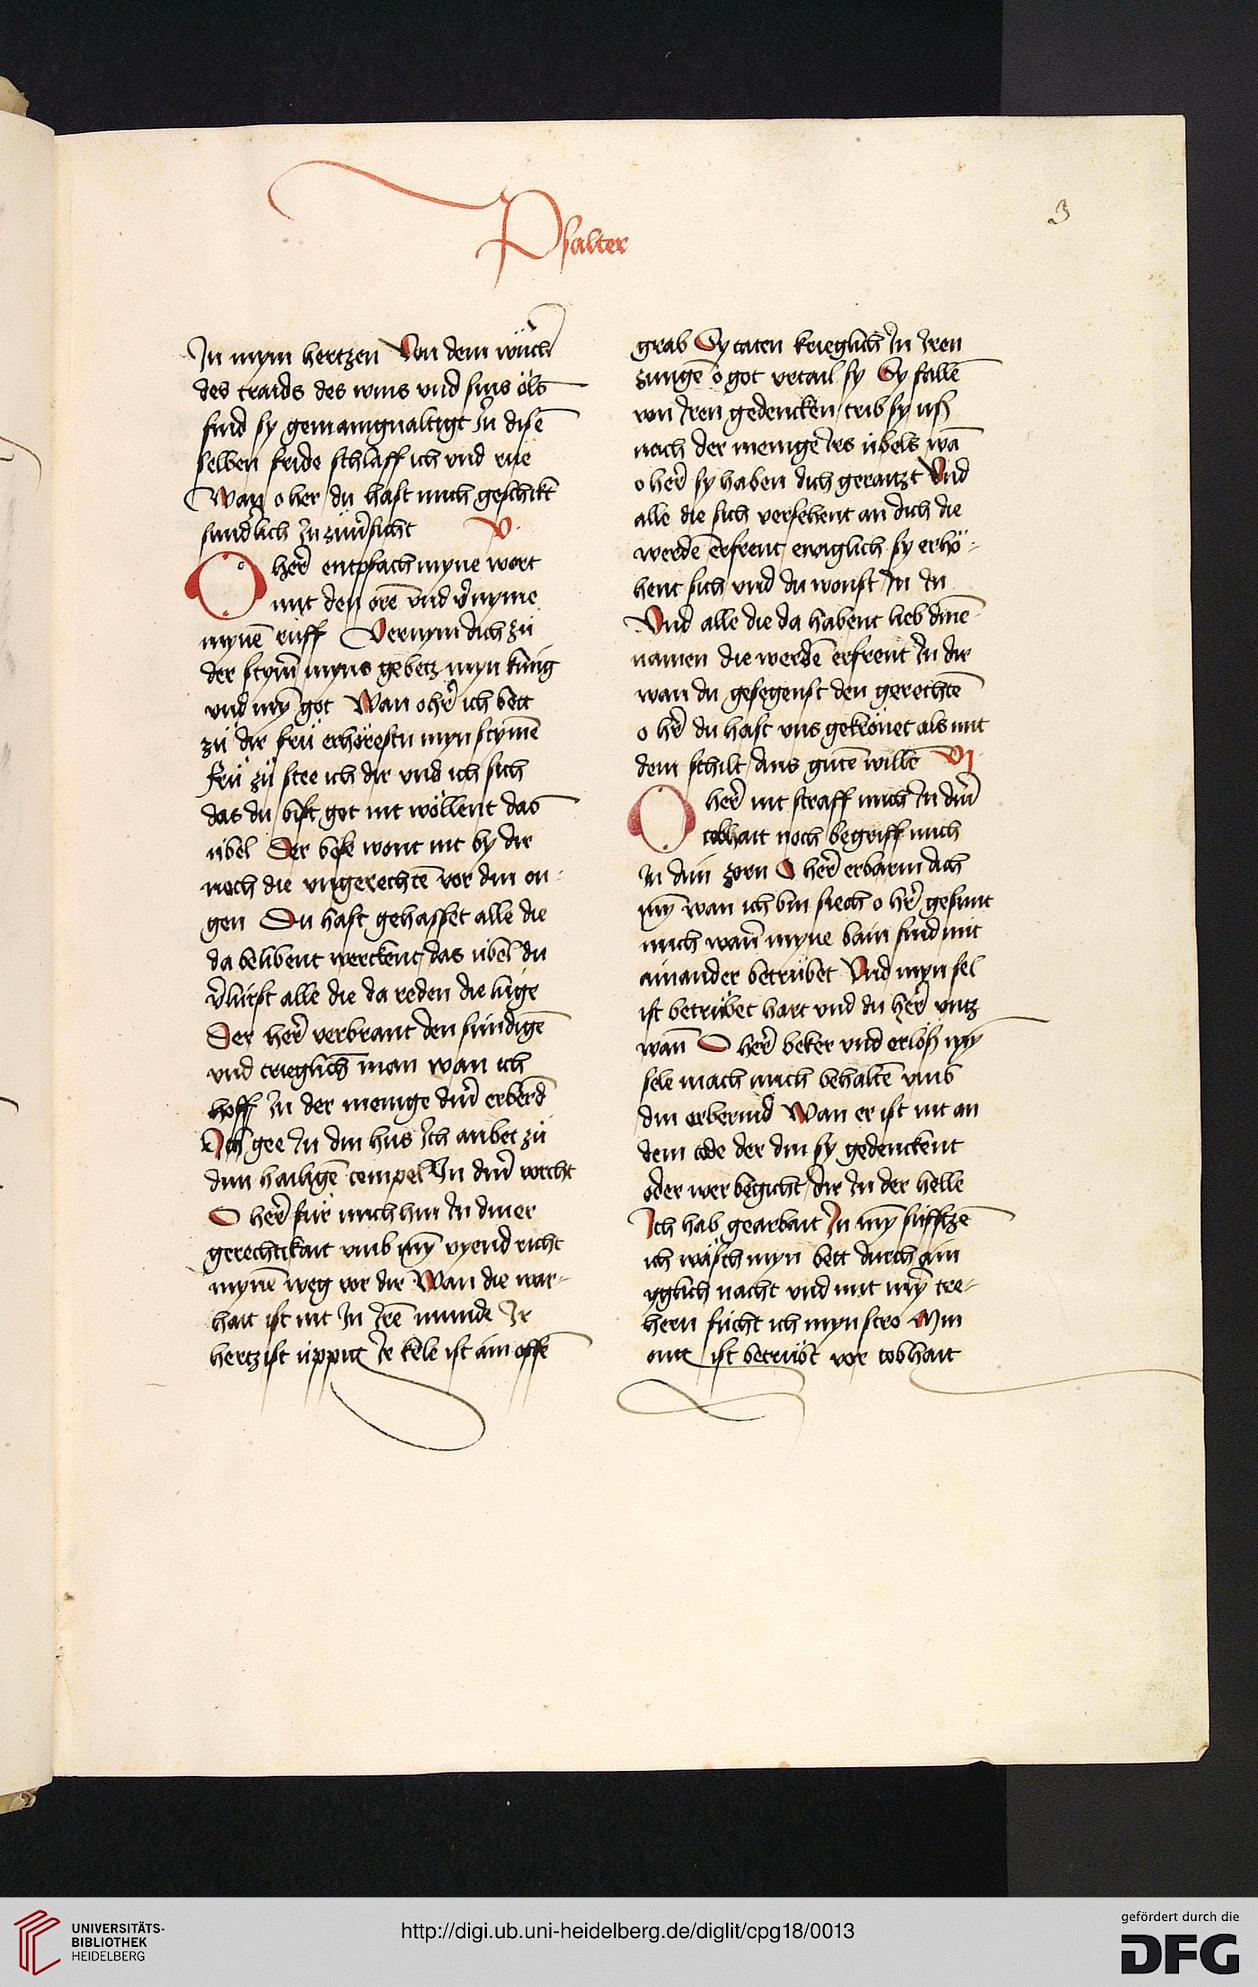 Psalter
3
In mym hertzen Von dem wůch̄
des traids des wins vnd sins öls
sind sy gemanigualtigt In disē
selben fride schlaff ich vnd rue
Wan o her du hast mich geschikt
sundlich zu zuu͛sicht V.
O her͛ entpfach myne wort
mit den orē vnd v͛nyme
mynē rüff Vernym dich zü
der stym̄ myns gebetz myn küng
vnd mȳ got Wan o her͛ ich bett
zü dir frü erhörestu myn stymē
frü zü stee ich dir vnd ich sich
das du bist got nit wöllent das
übel Der böse wont nit by dir
noch die vngerechtē vor din ou-
gen Du hast gehasset alle die
da belibent werckent das übel du
v͛lürst alle die da reden die lüge
Der her͛ verbrant den sündigē
vnd trieglich man wan ich
hoff In der menige din͛ erbermd
Ich gee In din hus Ich anbet zü
dim hailigē tempel In din͛ vorcht
O her͛ für mich hin In diner
gerechtikait vmb mȳ vyend richt
mynē weg vor dir Wan die war-
hait ist nit In Irē munde Ir
hertz ist üppig Ir kele ist ain offē
grab Sy taten krieglich In Iren
zungē o got vrtail sy Sy fallē
von Iren gedencken trib sy uß
nach der menige Irs übels wā
o her͛ sy haben dich geraitzt Vnd
alle die sich versehent an dich die
werdē erfreut ewiglich sy erhö-
hent sich vnd du wonst In In
Vnd alle die da habent lieb dinē
namen die werdē erfreut In dir
wan du gesegenst den gerechtē
o her͛ du hast vns gekrönet als mit
dem schilt dins gutē willē VI
O her͛ nit straff mich In din͛
tobhait noch begriff mich
In dim zorn O her͛ erbarm dich
mȳ wan ich bin siech o her͛ gesunt
mich wan̄ myne bain sind mit
ainander betrübet Vnd myn sel
ist betrübet hart vnd du her͛ vntz
wan̄ O her͛ beker vnd erlöß mȳ
sele mach mich behaltē vmb
din erbermd Wan er ist nit an
dem tode der din sy gedenckent
oder wer begicht dir In der helle
Ich hab gearbait In mȳ süfftzē
ich wäsch myn bett durch ain
yglich nacht vnd mit mȳ tre-
hern fücht ich myn stro Min
oug ist betrübt vor tobhait
UNIVERSITÄTS-
BIBLIOTHEK
HEIDELBERG
http://digi.ub.uni-heidelberg.de/diglit/cpg18/0013
gefördert durch die
DFG